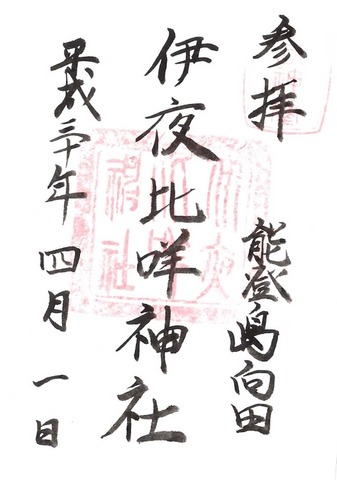 参拝 能登嶋向田
伊夜比咩神社
平成三十年四月一日